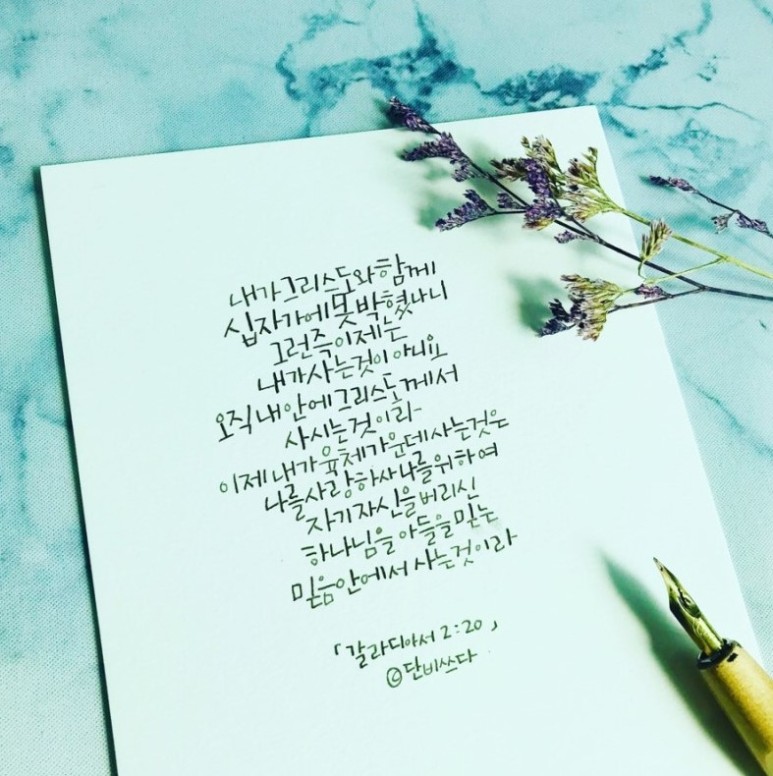 내가 그리스도와 함께
십자가에 못 박혔나니
그런즉 이제는
내가 사는 것이 아니요
오직 내 안에 그리스도께서
사시는 것이라
이제 내가 육체 가운데 사는 것은
나를 사랑하사 나를 위하여
자기 자신을 버리신
하나님을 아들을 믿는
믿음 안에서 사는 것이라
「갈라디아서 2:20」
©단비쓰다